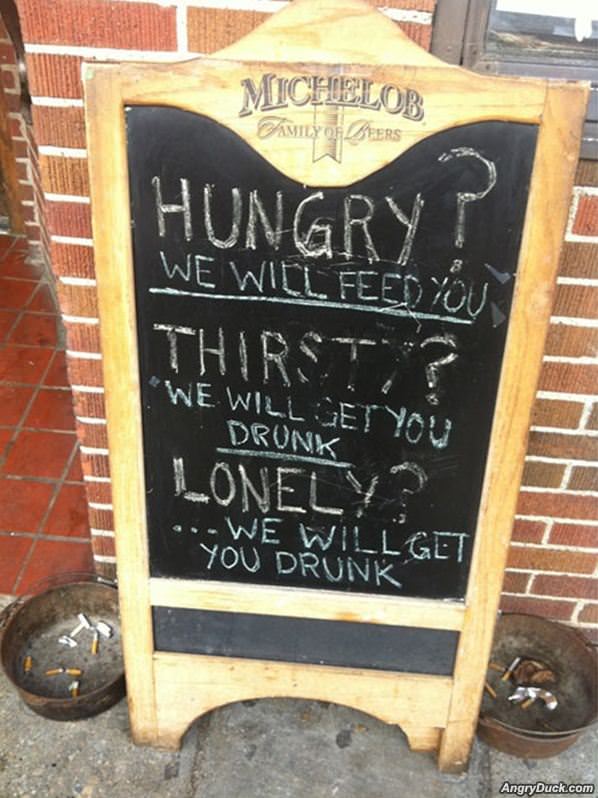 MICHELOB
FAMILY OF BEERS
HUNGRY?
WE WILL FEED YOU
THIRSTY?
WE WILL GET YOU
DRUNK
LONELY?
...WE WILL GET
YOU DRUNK
AngryDuck.com